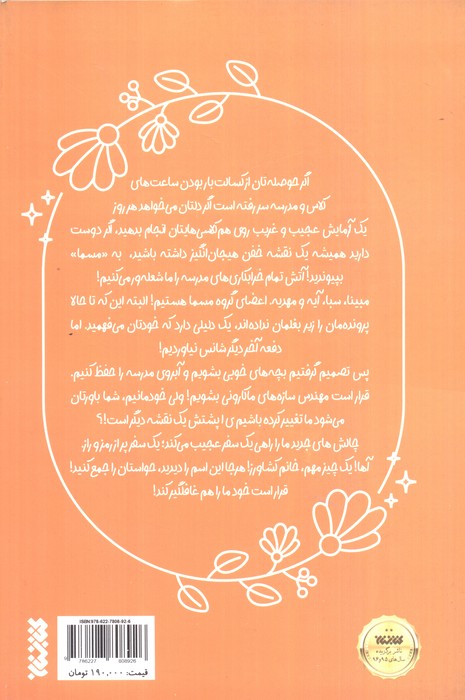 اگر حوصله‌تان از کسالت‌بار بودن ساعت‌های
کلاس و مدرسه سر رفته است اگر دلتان می‌خواهد هر روز
یک آزمایش عجیب و غریب روی هم‌کلاسی‌هایتان انجام بدهید، اگر دوست
دارید همیشه یک نقشه خفن هیجان‌انگیز داشته باشید، به «مسما»
بپیوندید! آتش تمام خرابکاری‌های مدرسه را ما شعله‌ور می‌کنیم!
مبینا، سبا، آیه و مهدیه. اعضای گروه مسما هستیم! البته این که تا حالا
پرونده‌مان را زیر بغلمان نداده‌اند، یک دلیلی دارد که خودتان می‌فهمید اما
دفعه آخر دیگر شانس نیاوردیم!
پس تصمیم گرفتیم بچه‌های خوبی بشویم و آبروی مدرسه را حفظ کنیم.
قرار است مهندس سازه‌های ماکارونی بشویم! ولی خودمانیم، شما باورتان
می‌شود ما تغییر کرده باشیم ی ا پشتش یک نقشه دیگر است!؟
چالش های جدید ما را راهی یک سفر عجیب می‌کند؛ یک سفر پر از رمز و راز.
آها! یک چیز مهم، خانم کشاورز! هرجا این اسم را دیدید، حواستان را جمع کنید!
قرار است خود ما را هم غافلگیر کند!
ISBN 978-622-7808-92-6
9 786227 808926
قیمت: ۱۹۰,۰۰۰ تومان
ناشر برگزیده
سال‌های ۹۵ و ۹۶